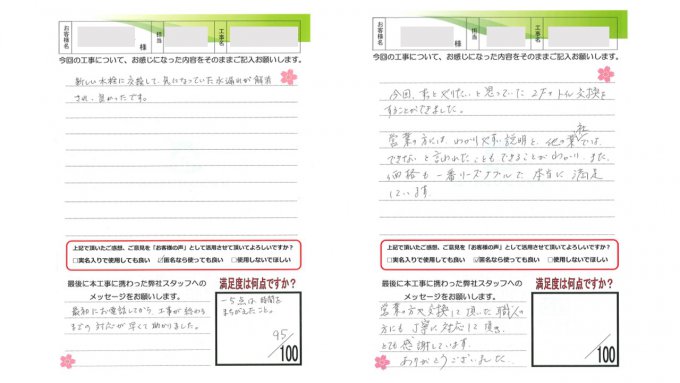 お客様名
様
担当
工事名
今回の工事について、お感じになった内容をそのままご記入お願いします。
新しい水栓に交換して、気になっていた水漏れが解消
され、良かったです。
上記で頂いたご感想、ご意見を「お客様の声」として活用させて頂いてよろしいですか？
□実名入りで使用しても良い ☑匿名なら使っても良い □使用しないでほしい
最後に本工事に携わった弊社スタッフへの
メッセージをお願いします。
最初にお電話してから工事が終わる
までの対応が早くて助かりました。
満足度は何点ですか？
-5点は時間を
まちがえたこと。
95
/100
お客様名
様
担当
工事名
今回の工事について、お感じになった内容をそのままご記入お願いします。
今回、ずっとやりたいと思っていた2Fのトイレ交換を
することができました。
営業の方には、わかりやすい説明と、他の業社では
できないと言われたこともできることがわかり、また、
価格も一番リーズナブルで本当に満足
しています。
上記で頂いたご感想、ご意見を「お客様の声」として活用させて頂いてよろしいですか？
□実名入りで使用しても良い ☑匿名なら使っても良い □使用しないでほしい
最後に本工事に携わった弊社スタッフへの
メッセージをお願いします。
営業の方や交換して頂いた職人の
方にも丁寧に対応して頂き、
とても感謝しています。
ありがとうございました。
満足度は何点ですか？
/100